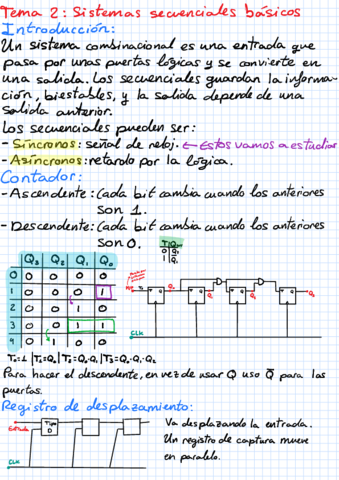 Tema 2: Sistemas secuenciales básicos
Introducción:
Un sistema combinacional es una entrada que
pasa por unas puertas lógicas y se convierte en
una salida. Los secuenciales guardan la informa-
ción, biestables, y la salida depende de una
salida anterior.
Los secuenciales pueden ser:
- Síncronos: señal de reloj. ← Estos vamos a estudiar
- Asíncronos: retardo por la lógica.
Contador:
- Ascendente: Cada bit cambia cuando los anteriores
son 1.
- Descendente: Cada bit cambia cuando los anteriores
son 0.
Q₃ Q₂ Q₁ Q₀
0 0 0 0 0
1 0 0 0 1
2 0 0 1 0
3 0 0 1 1
4 0 1 0 0
CLK
T₀=1 | T₁=Q₀ | T₂=Q₀·Q₁ | T₃=Q₀·Q₁·Q₂
Para hacer el descendente, en vez de usar Q uso Q̅ para las
puertas.
Registro de desplazamiento:
Entrada
Tipo
D
CLK
Va desplazando la entrada.
Un registro de captura mueve
en paralelo.